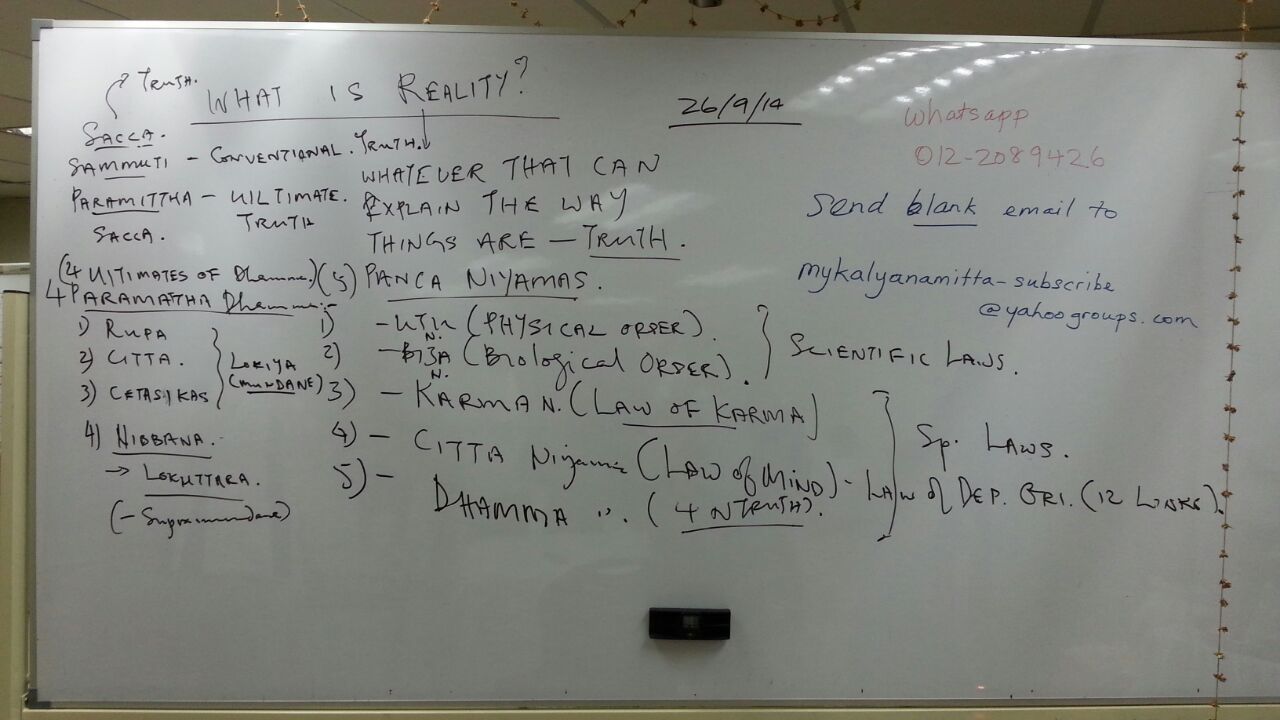 WHAT IS REALITY?
26/9/14
TRUTH.
SACCA.
SAMMUTI - CONVENTIONAL. TRUTH.
PARAMITTHA - UILTIMATE.
TRUTH
SACCA.
WHATEVER THAT CAN
EXPLAIN THE WAY
THINGS ARE - TRUTH.
(4 ULTIMATES OF Dhamma)
4 PARAMATHA Dhamma:-
1) RUPA
2) CITTA.
3) CETASIKAS
LOKIYA
(MUNDANE)
4) NIBBANA.
→ LOKUTTARA.
(- Supramundane)
(5) PANCA NIYAMAS.
1) - UTU N. (PHYSICAL ORDER).
2) - BIJA N. (Biological ORDER).
SCIENTIFIC LAWS.
3) - KARMA N. (LAW OF KARMA)
4) - CITTA Niyama (LAW of MIND) - LAW of DEP. ORI. (12 LINKS).
5) - DHAMMA ". (4 N TRUTH).
Sp. LAWS.
Whatsapp
012-2089426
Send blank email to
mykalyanamitta-subscribe
@yahoogroups.com